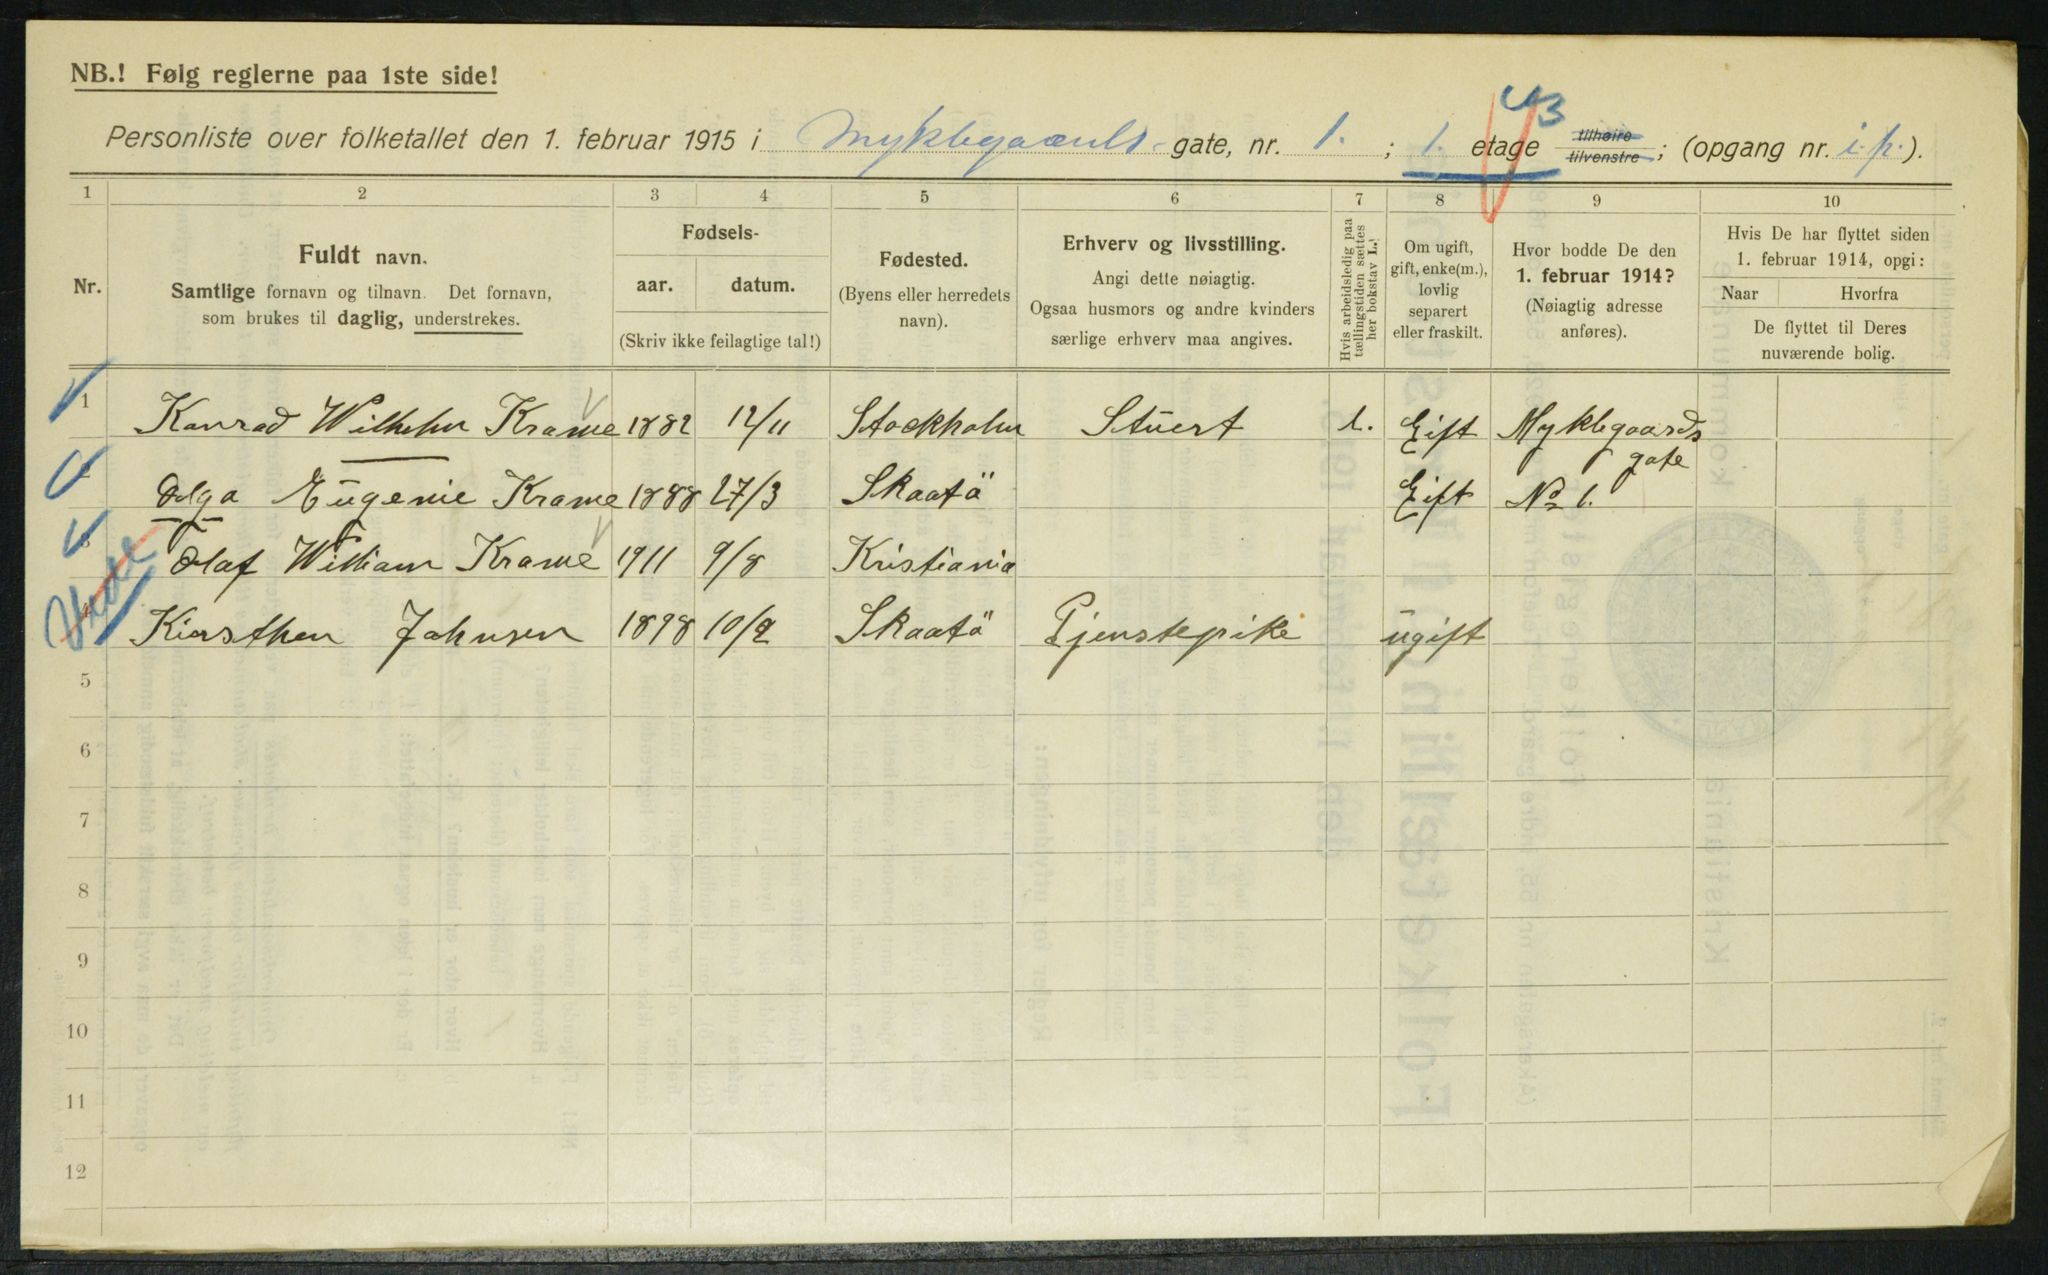 NB.! Følg reglerne paa 1ste side!
43
Personliste over folketallet den 1. februar 1915 i Myklegaards- gate, nr. 1. ; 1. etage tilhøire tilvenstre ; (opgang nr. i.p.).
1 2 3 4 5 6 7 8 9 10
Nr.
Fuldt navn.
Samtlige fornavn og tilnavn. Det fornavn,
som brukes til daglig, understrekes.
Fødsels-
aar. datum.
(Skriv ikke feilagtige tal!)
Fødested.
(Byens eller herredets
navn).
Erhverv og livsstilling.
Angi dette nøiagtig.
Ogsaa husmors og andre kvinders
særlige erhverv maa angives.
Hvis arbeidsledig paa
tællingstiden sættes
her bokstav L.!
Om ugift,
gift, enke(m.),
lovlig
separert
eller fraskilt.
Hvor bodde De den
1. februar 1914?
(Nøiagtig adresse
anføres).
Hvis De har flyttet siden
1. februar 1914, opgi:
Naar Hvorfra
De flyttet til Deres
nuværende bolig.
1 Konrad Wilhelm Krame 1882 12/11 Stockholm Stuert l. Gift Myklegaards
gate
2 Olga Eugenie Krame 1888 27/3 Skaatö Gift No 1.
3 Olaf William Krame 1911 9/8 Kristiania
4 Kirsthen Johnsen 1898 10/2 Skaatö Tjenstepike ugift
5
6
7
8
9
10
11
12